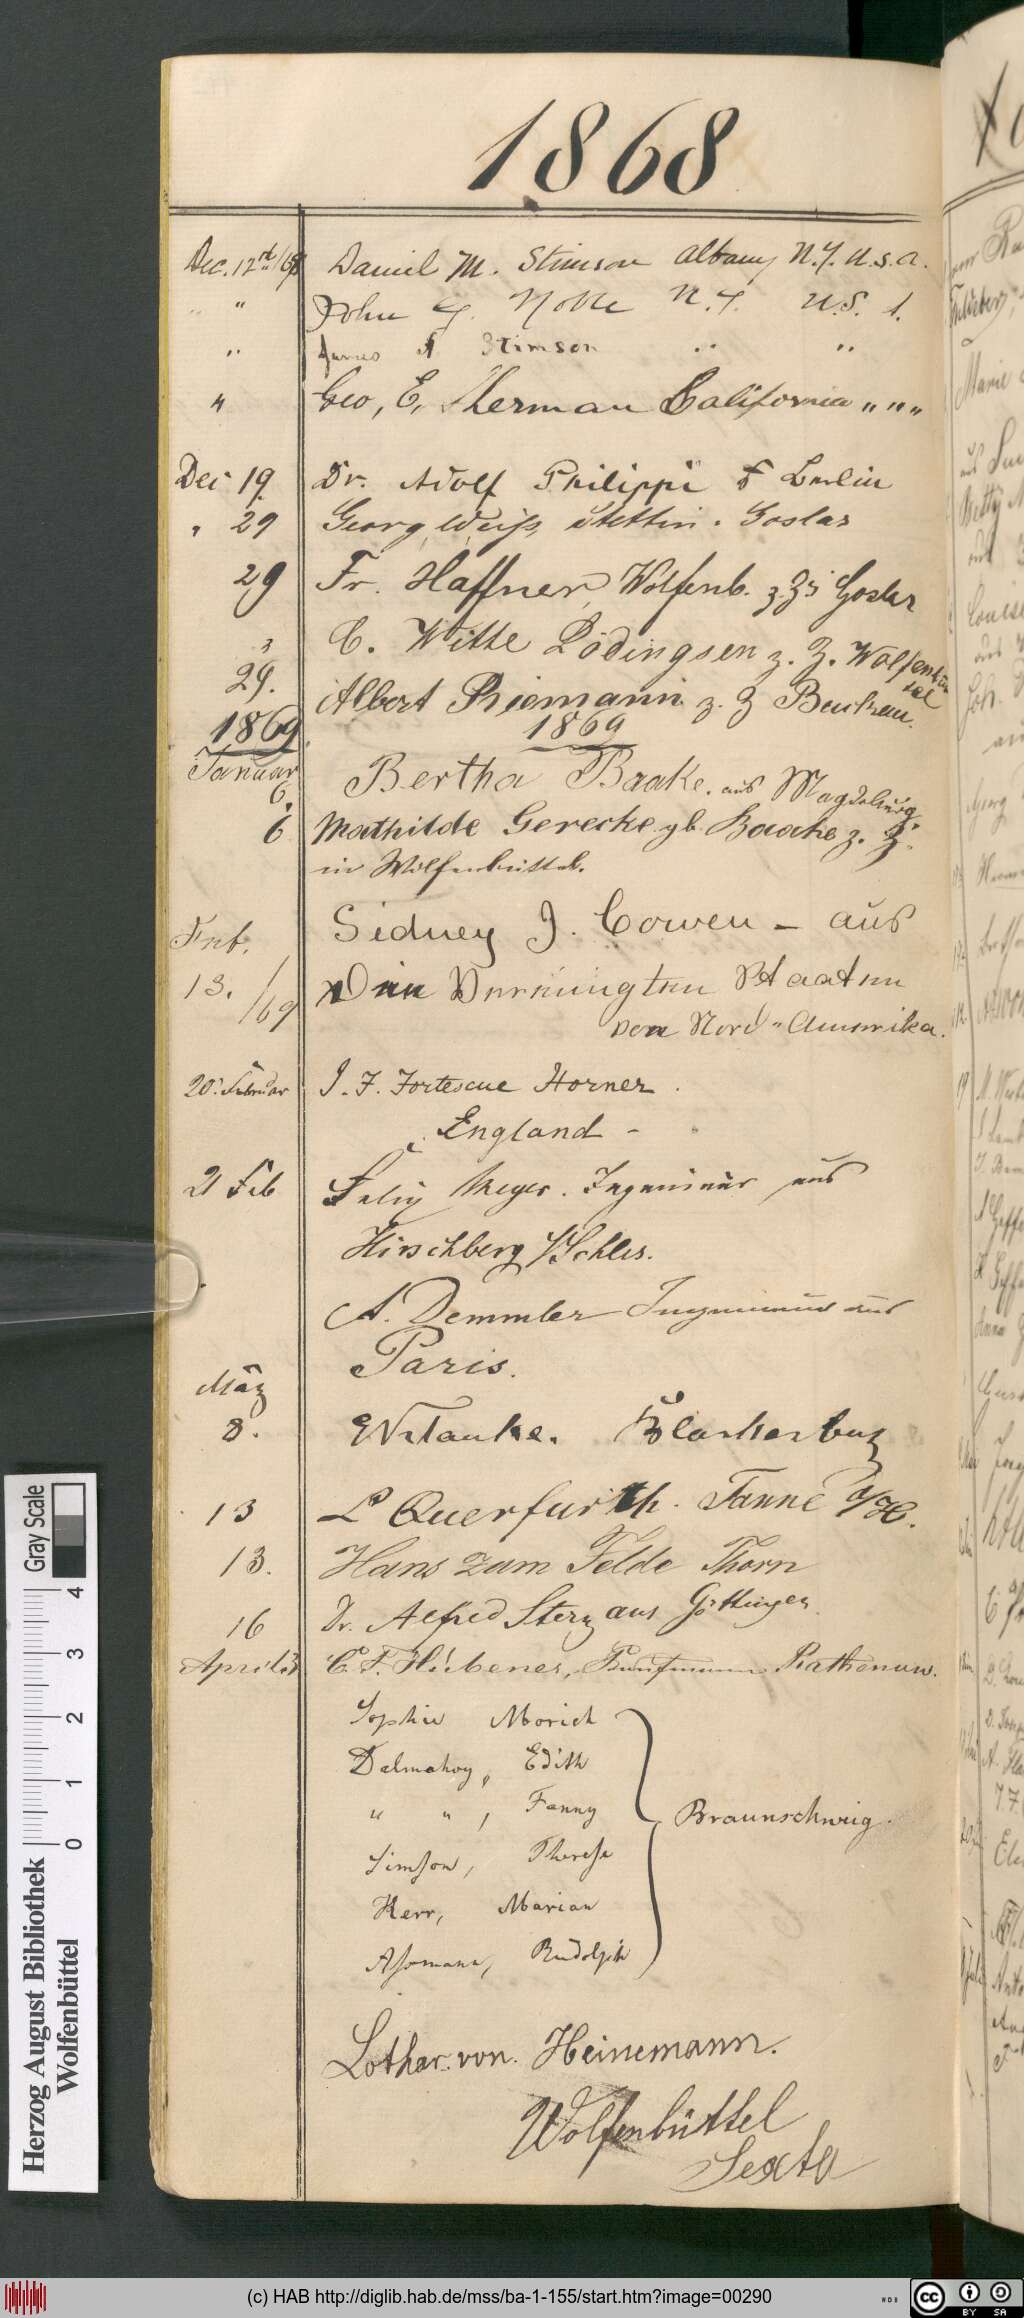 1868
Dec. 12th/68 Daniel M. Stimson Albany N.Y. U.S.A.
" " John G. Noble N.Y. U.S. A.
" James A Stimson " "
" Geo, E, Sherman California " " "
Dec 19. Dr. Adolf Philippi Berlin
" 29 Georg Weiß, Stettin. Goslar
29 Fr. Haffner, Wolfenb. z.Z. Goslar
" C. Witte Lödingsen z. Z. Wolfenbüttel
29. Albert Riemann z. Z Buckau.
1869. 1869
Januar
6. Bertha Baake. aus Magdeburg
6 Mathilde Gerecke gb. Baake z. Z.
in Wolfenbüttel.
Feb. Sidney J. Cowen – aus
13./69 Den Vereinigten Staaten
von Nord-Amerika.
20. Februar J. F. Fortescue Horner.
England –
21 Feb Felix Meyer. Ingenieur aus
Hirschberg i/Schles.
A. Demmler Ingenieur aus
Paris.
März
8. Blankenburg
13 L Querfurth. Tanne a/H.
13. Hans zum Felde Thorn
16 Dr. Alfred Stern aus Göttingen
April 3 C. F. Hübener, Kaufmann Rathenow.
Sophie Morich
Dalmahoy, Edith
" ", Fanny
Braunschweig.
Simson, Therese
Herr, Marian
Assmann, Rudolph
Lothar von Heinemann.
Wolfenbüttel
Sexta
Gray Scale
0 1 2 3 4
Herzog August Bibliothek
Wolfenbüttel
(c) HAB http://diglib.hab.de/mss/ba-1-155/start.htm?image=00290
cc BY SA